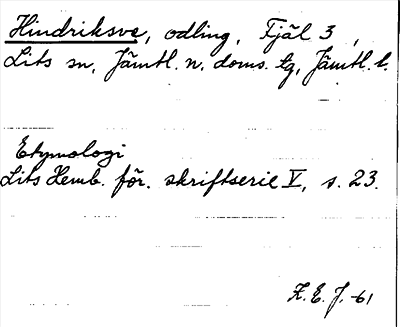 Hindriksve, odling, Fjäl 3,
Lits sn, Jämtl. n. doms. tg, Jämtl. l.
Etymologi
Lits Hemb. för. skriftserie V, s. 23.
E. J. -61